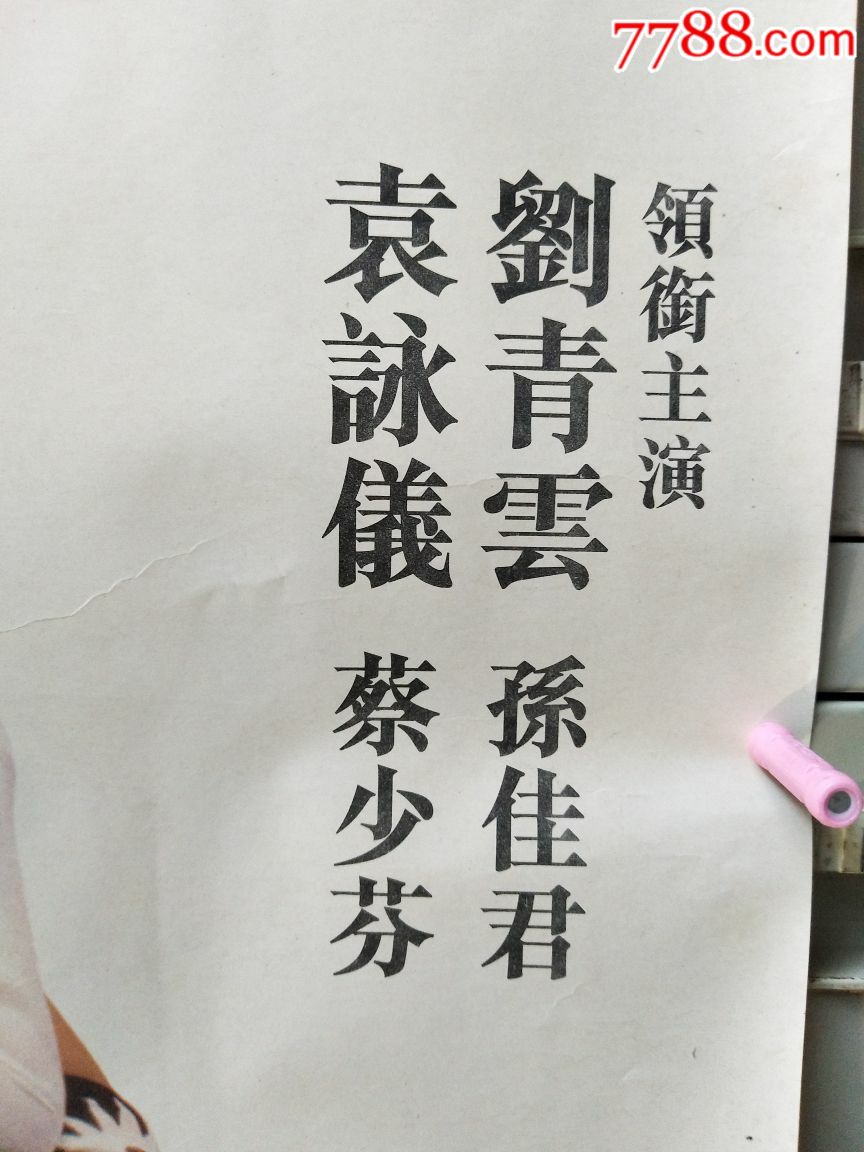 7788.com
領銜主演
劉青雲 孫佳君
袁詠儀 蔡少芬